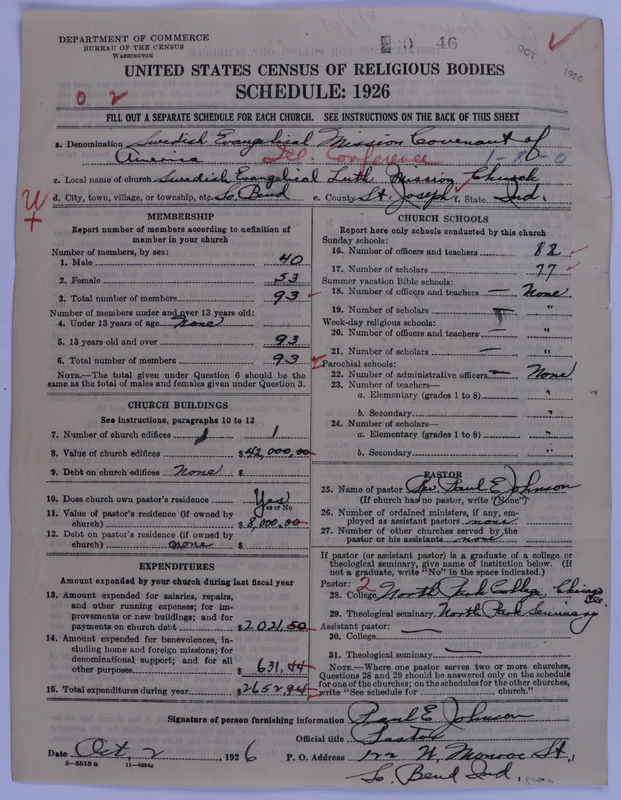 DEPARTMENT OF COMMERCE
BUREAU OF THE CENSUS
WASHINGTON
46
OCT 1926
UNITED STATES CENSUS OF RELIGIOUS BODIES
SCHEDULE: 1926
0 2
FILL OUT A SEPARATE SCHEDULE FOR EACH CHURCH. SEE INSTRUCTIONS ON THE BACK OF THIS SHEET
a. Denomination Swedish Evangelical Mission Covenant of
America Ill. Conference 1-8-0
c. Local name of church Swedish Evangelical Luth. Mission Church
d. City, town, village, or township, etc. So. Bend e. County St. Joseph f. State Ind.
MEMBERSHIP
Report number of members according to definition of
member in your church
Number of members, by sex:
1. Male 40
2. Female 53
3. Total number of members 93
Number of members under and over 13 years old:
4. Under 13 years of age None
5. 13 years old and over 93
6. Total number of members 93
NOTE.—The total given under Question 6 should be
same as the total of males and females given under Question 3.
CHURCH BUILDINGS
See instructions, paragraphs 10 to 12
7. Number of church edifices 1 1
8. Value of church edifices $42,000,00
9. Debt on church edifices None $
10. Does church own pastor's residence Yes
Yes or No
11. Value of pastor's residence (if owned by
church) $8,000.00
12. Debt on pastor's residence (if owned by
church) none $
EXPENDITURES
Amount expended by your church during last fiscal year
13. Amount expended for salaries, repairs,
and other running expenses; for im-
provements or new buildings; and for
payments on church debt $2021,50
14. Amount expended for benevolences, in-
cluding home and foreign missions; for
denominational support; and for all
other purposes $631,44
15. Total expenditures during year $2652 94
CHURCH SCHOOLS
Report here only schools conducted by this church
Sunday schools:
16. Number of officers and teachers 82
17. Number of scholars 77
Summer vacation Bible schools:
18. Number of officers and teachers — None
19. Number of scholars "
Week-day religious schools:
20. Number of officers and teachers — "
21. Number of scholars — "
Parochial schools:
22. Number of administrative officers — None
23. Number of teachers—
a. Elementary (grades 1 to 8) "
b. Secondary "
24. Number of scholars—
a. Elementary (grades 1 to 8) "
b. Secondary "
PASTOR
25. Name of pastor Paul E Johnson
(If church has no pastor, write "None")
26. Number of ordained ministers, if any, em-
ployed as assistant pastors none
27. Number of other churches served by the
pastor or his assistants none
If pastor (or assistant pastor) is a graduate of a college or
theological seminary, give name of institution below. (If
not a graduate, write "No" in the space indicated.)
Pastor: 2
28. College North Park College, Chicago
29. Theological seminary North Park Seminary
Assistant pastor:
30. College —
31. Theological seminary —
NOTE.—Where one pastor serves two or more churches,
Questions 28 and 29 should be answered only on the schedule
for one of the churches; on the schedules for the other churches,
write "See schedule for church."
Signature of person furnishing information Paul E Johnson
Official title Pastor
Date Oct. 2, 1926 P. O. Address 122 W. Monroe St.,
So. Bend Ind.
8—5518a 11—9084a